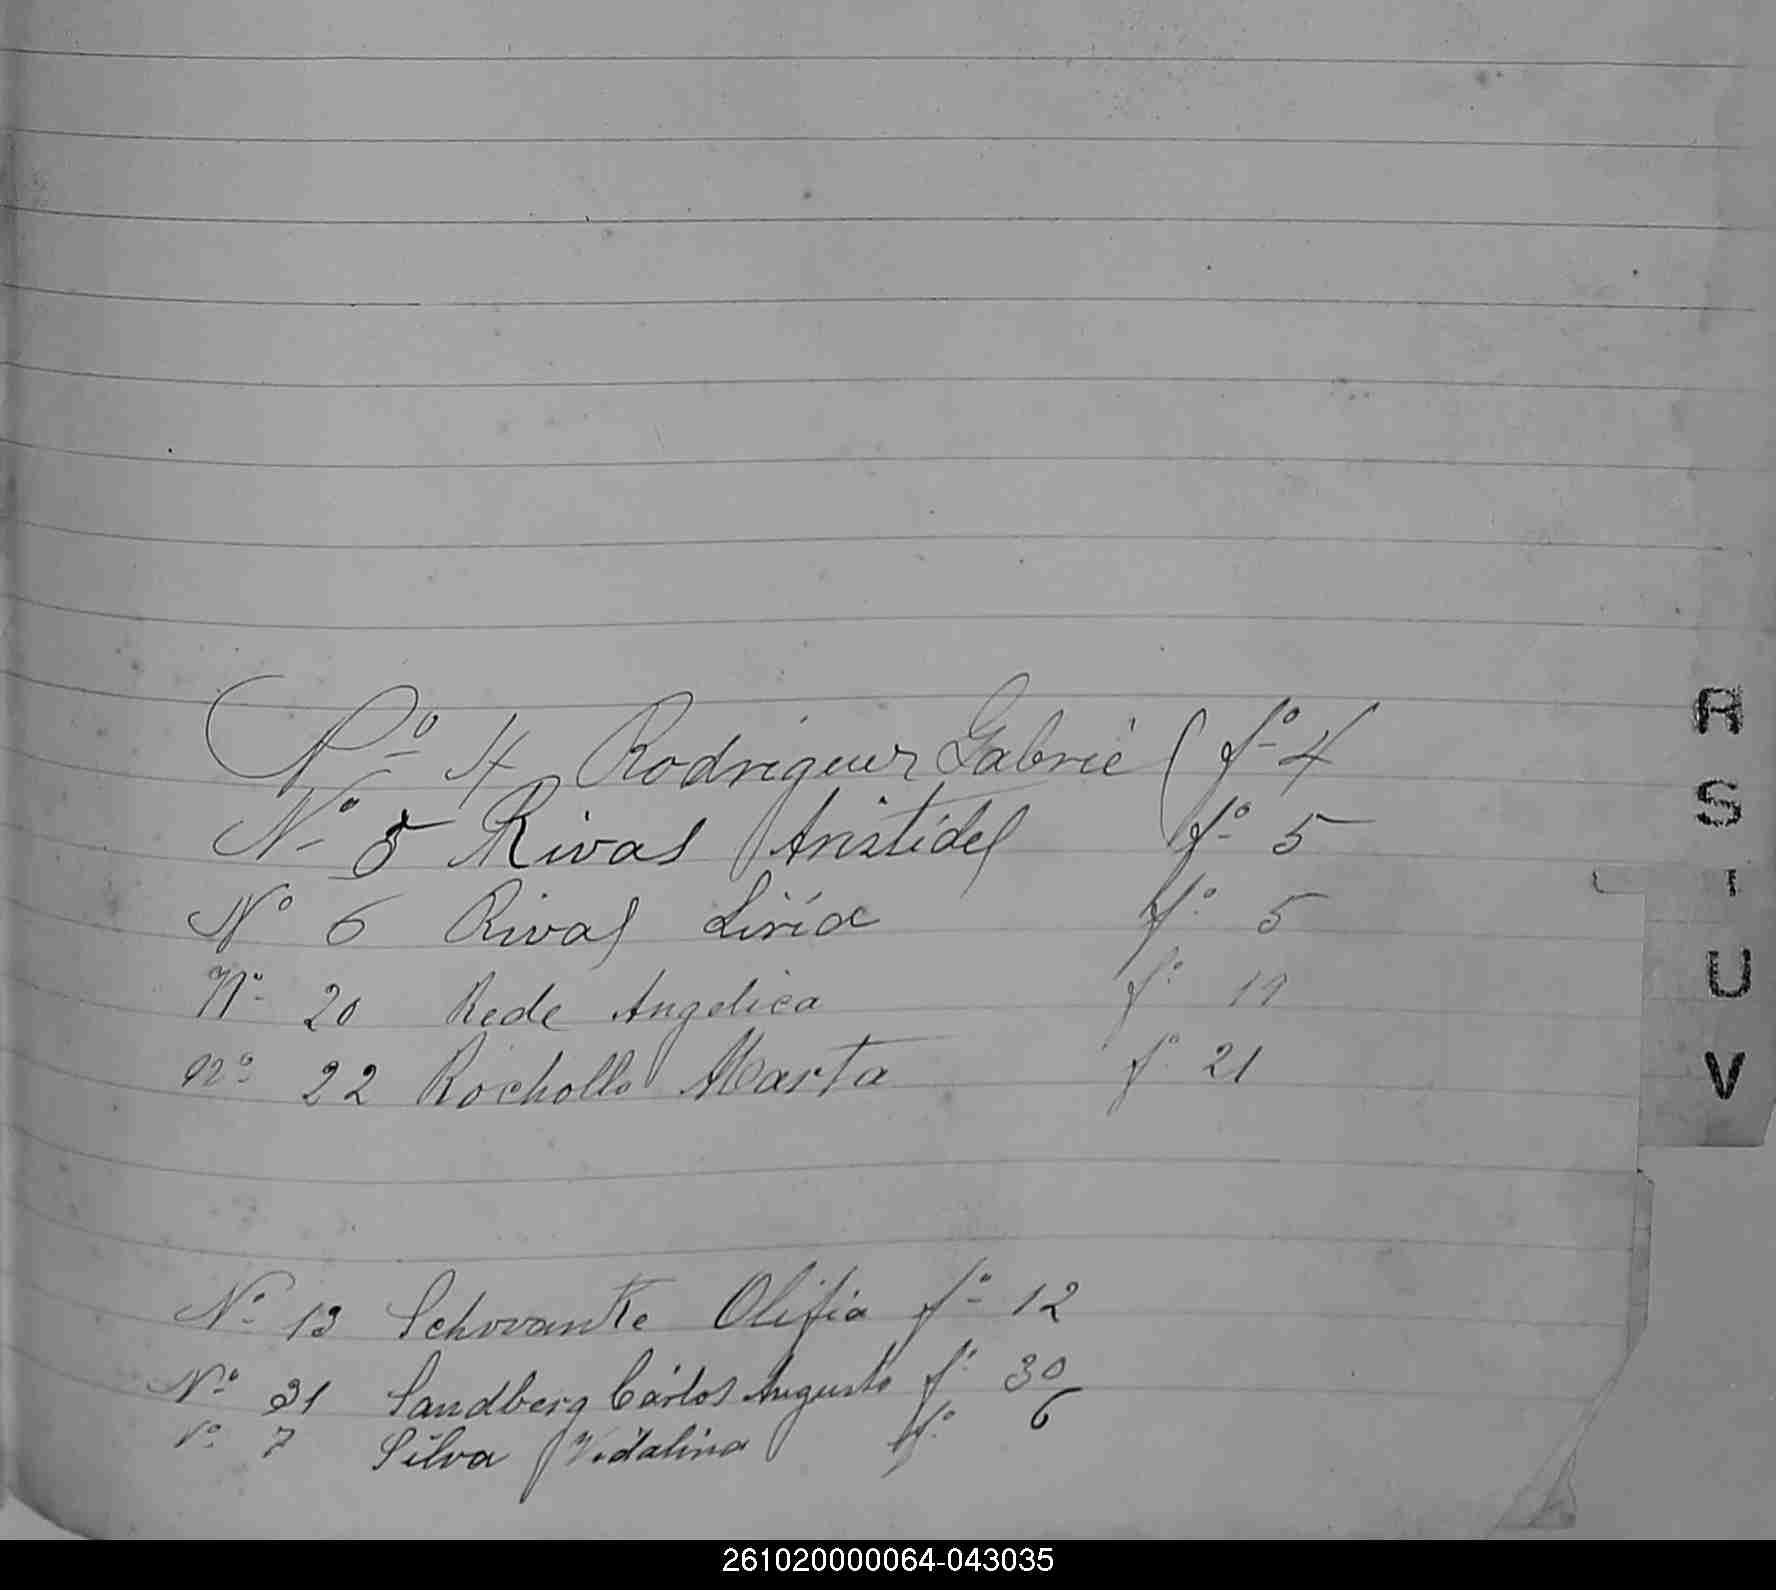 Nº 4 Rodriguez Gabriel fº 4
Nº 5 Rivas Aristides fº 5
Nº 6 Rivas Liria fº 5
Nº 20 Rede Angelica fº 19
Nº 22 Rochollo Marta fº 21
Nº 13 Schwanke Olifia fº 12
Nº 31 Sandberg Cárlos Augusto fº 30
Nº 7 Silva Vidalina fº 6
R
S
T
U
V
261020000064-043035